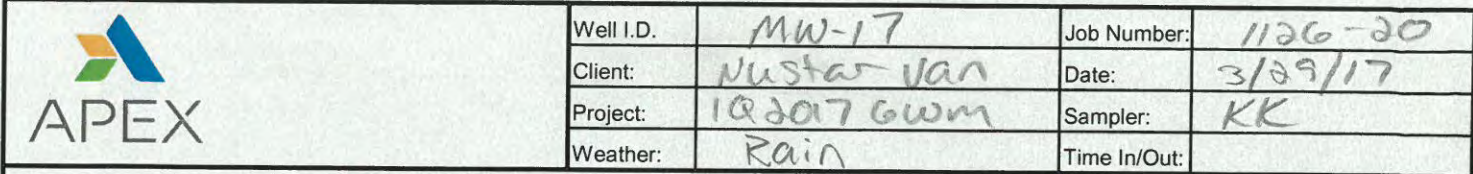 APEX
Well I.D. MW-17 Job Number: 1126-20
Client: Nustar Van Date: 3/29/17
Project: 1Q2017 GWM Sampler: KK
Weather: Rain Time In/Out: